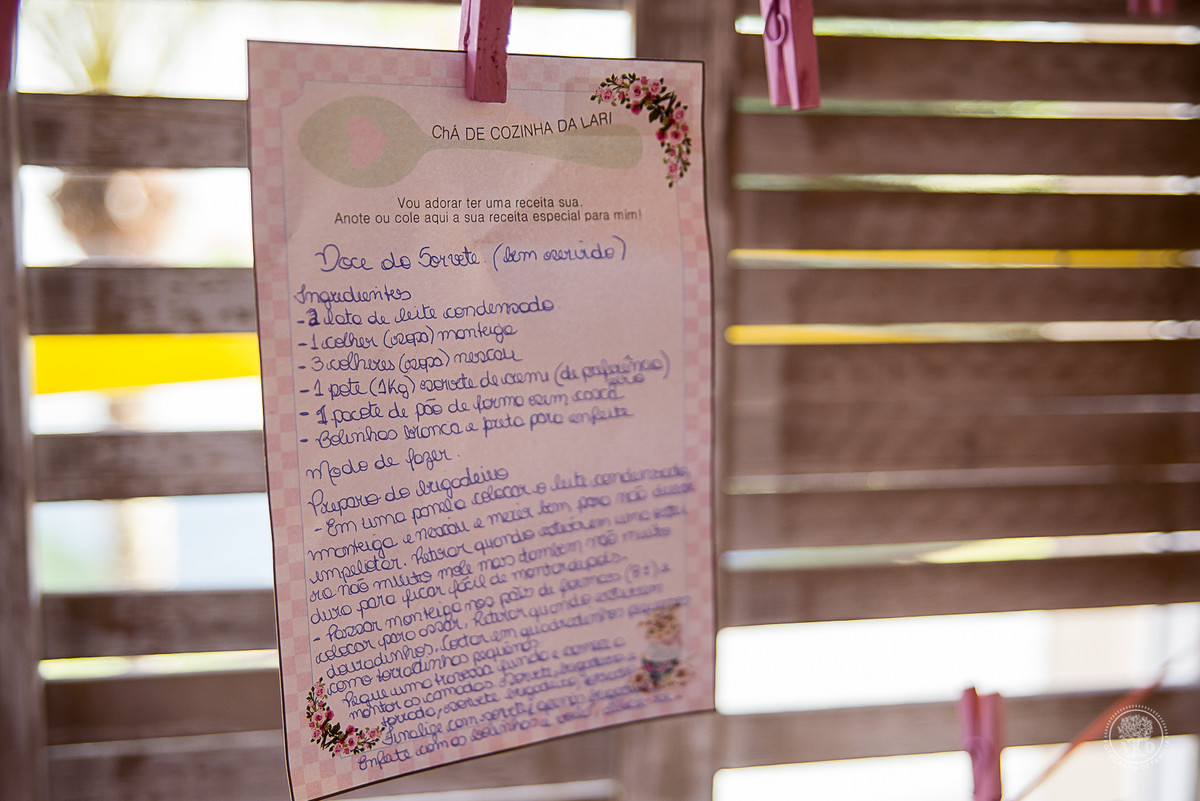 Chá DE COZINHA DA LARI
Vou adorar ter uma receita sua.
Anote ou cole aqui a sua receita especial para mim!
Doce do Sorvete. (bem servido)
Ingredientes
- 2 lata de leite condensado
- 1 colher (sopa) manteiga
- 3 colheres (sopa) nescau
- 1 pote (1Kg) sorvete de creme (de preferência)
- 1 pacote de pão de forma sem casca
- Bolinhas branca e preta para enfeite
Modo de fazer.
Preparo do brigadeiro
- Em uma panela colocar o leite condensado,
manteiga e nescau e mexer bem para não deixar
empelotar. Retirar quando estiverem uma
ra não muito mole mas também não muito
dura para ficar fácil de montar depois.
- Passar manteiga nos pães de formas (8) e
colocar para assar. Retirar quando estiverem
douradinhos. Cortar em quadradinhos pequenos
como torradinhas pequenas
Pegue uma travessa funda e comece a
montar as camadas. Sorvete, brigadeiro e
torrada, sorvete, brigadeiro, torrada
Finalize com sorvete,
Enfeite com as bolinhas